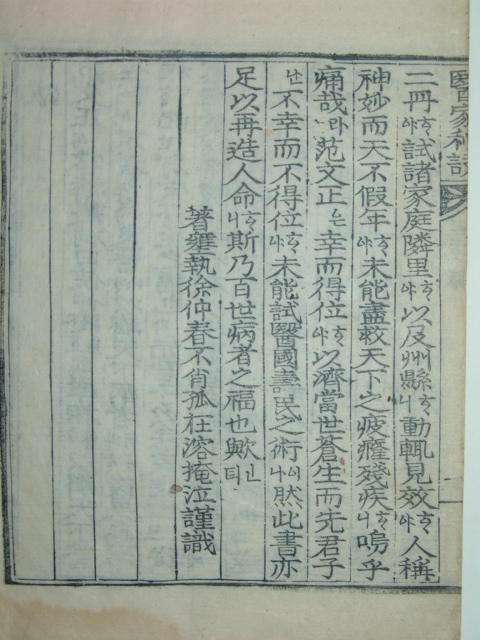 醫家秘訣
二冊ᄒᆞ야試諸家庭隣里ᄒᆞ야以及州縣ᄒᆞ니動輒見效ᄒᆞ야人稱
神妙而天不假年ᄒᆞ야未能盡救天下之疲癃殘疾ᄒᆞ니嗚乎
痛哉라范文正는幸而得位ᄒᆞ야以濟當世蒼生而先君子
난不幸而不得位ᄒᆞ야未能試醫國壽民之術이나然此書亦
足以再造人命ᄒᆞ니斯乃百世病者之福也歟인뎌
著雍執徐仲春不肖孤在溶掩泣謹識